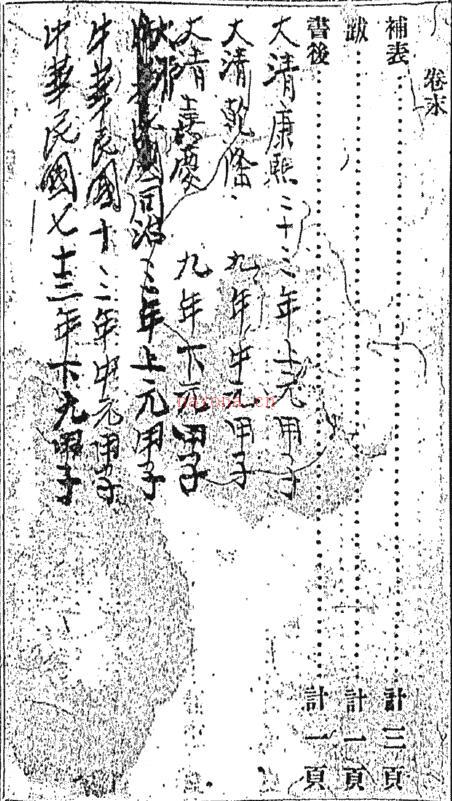 卷末
補表……計三頁
跋……計一頁
書後……計一頁
大清康熙二十三年上元甲子
大清乾隆九年中元甲子
大清嘉慶九年下元甲子
同治三年上元甲子
中華民國十二年中元甲子
中華民國七十三年下元甲子